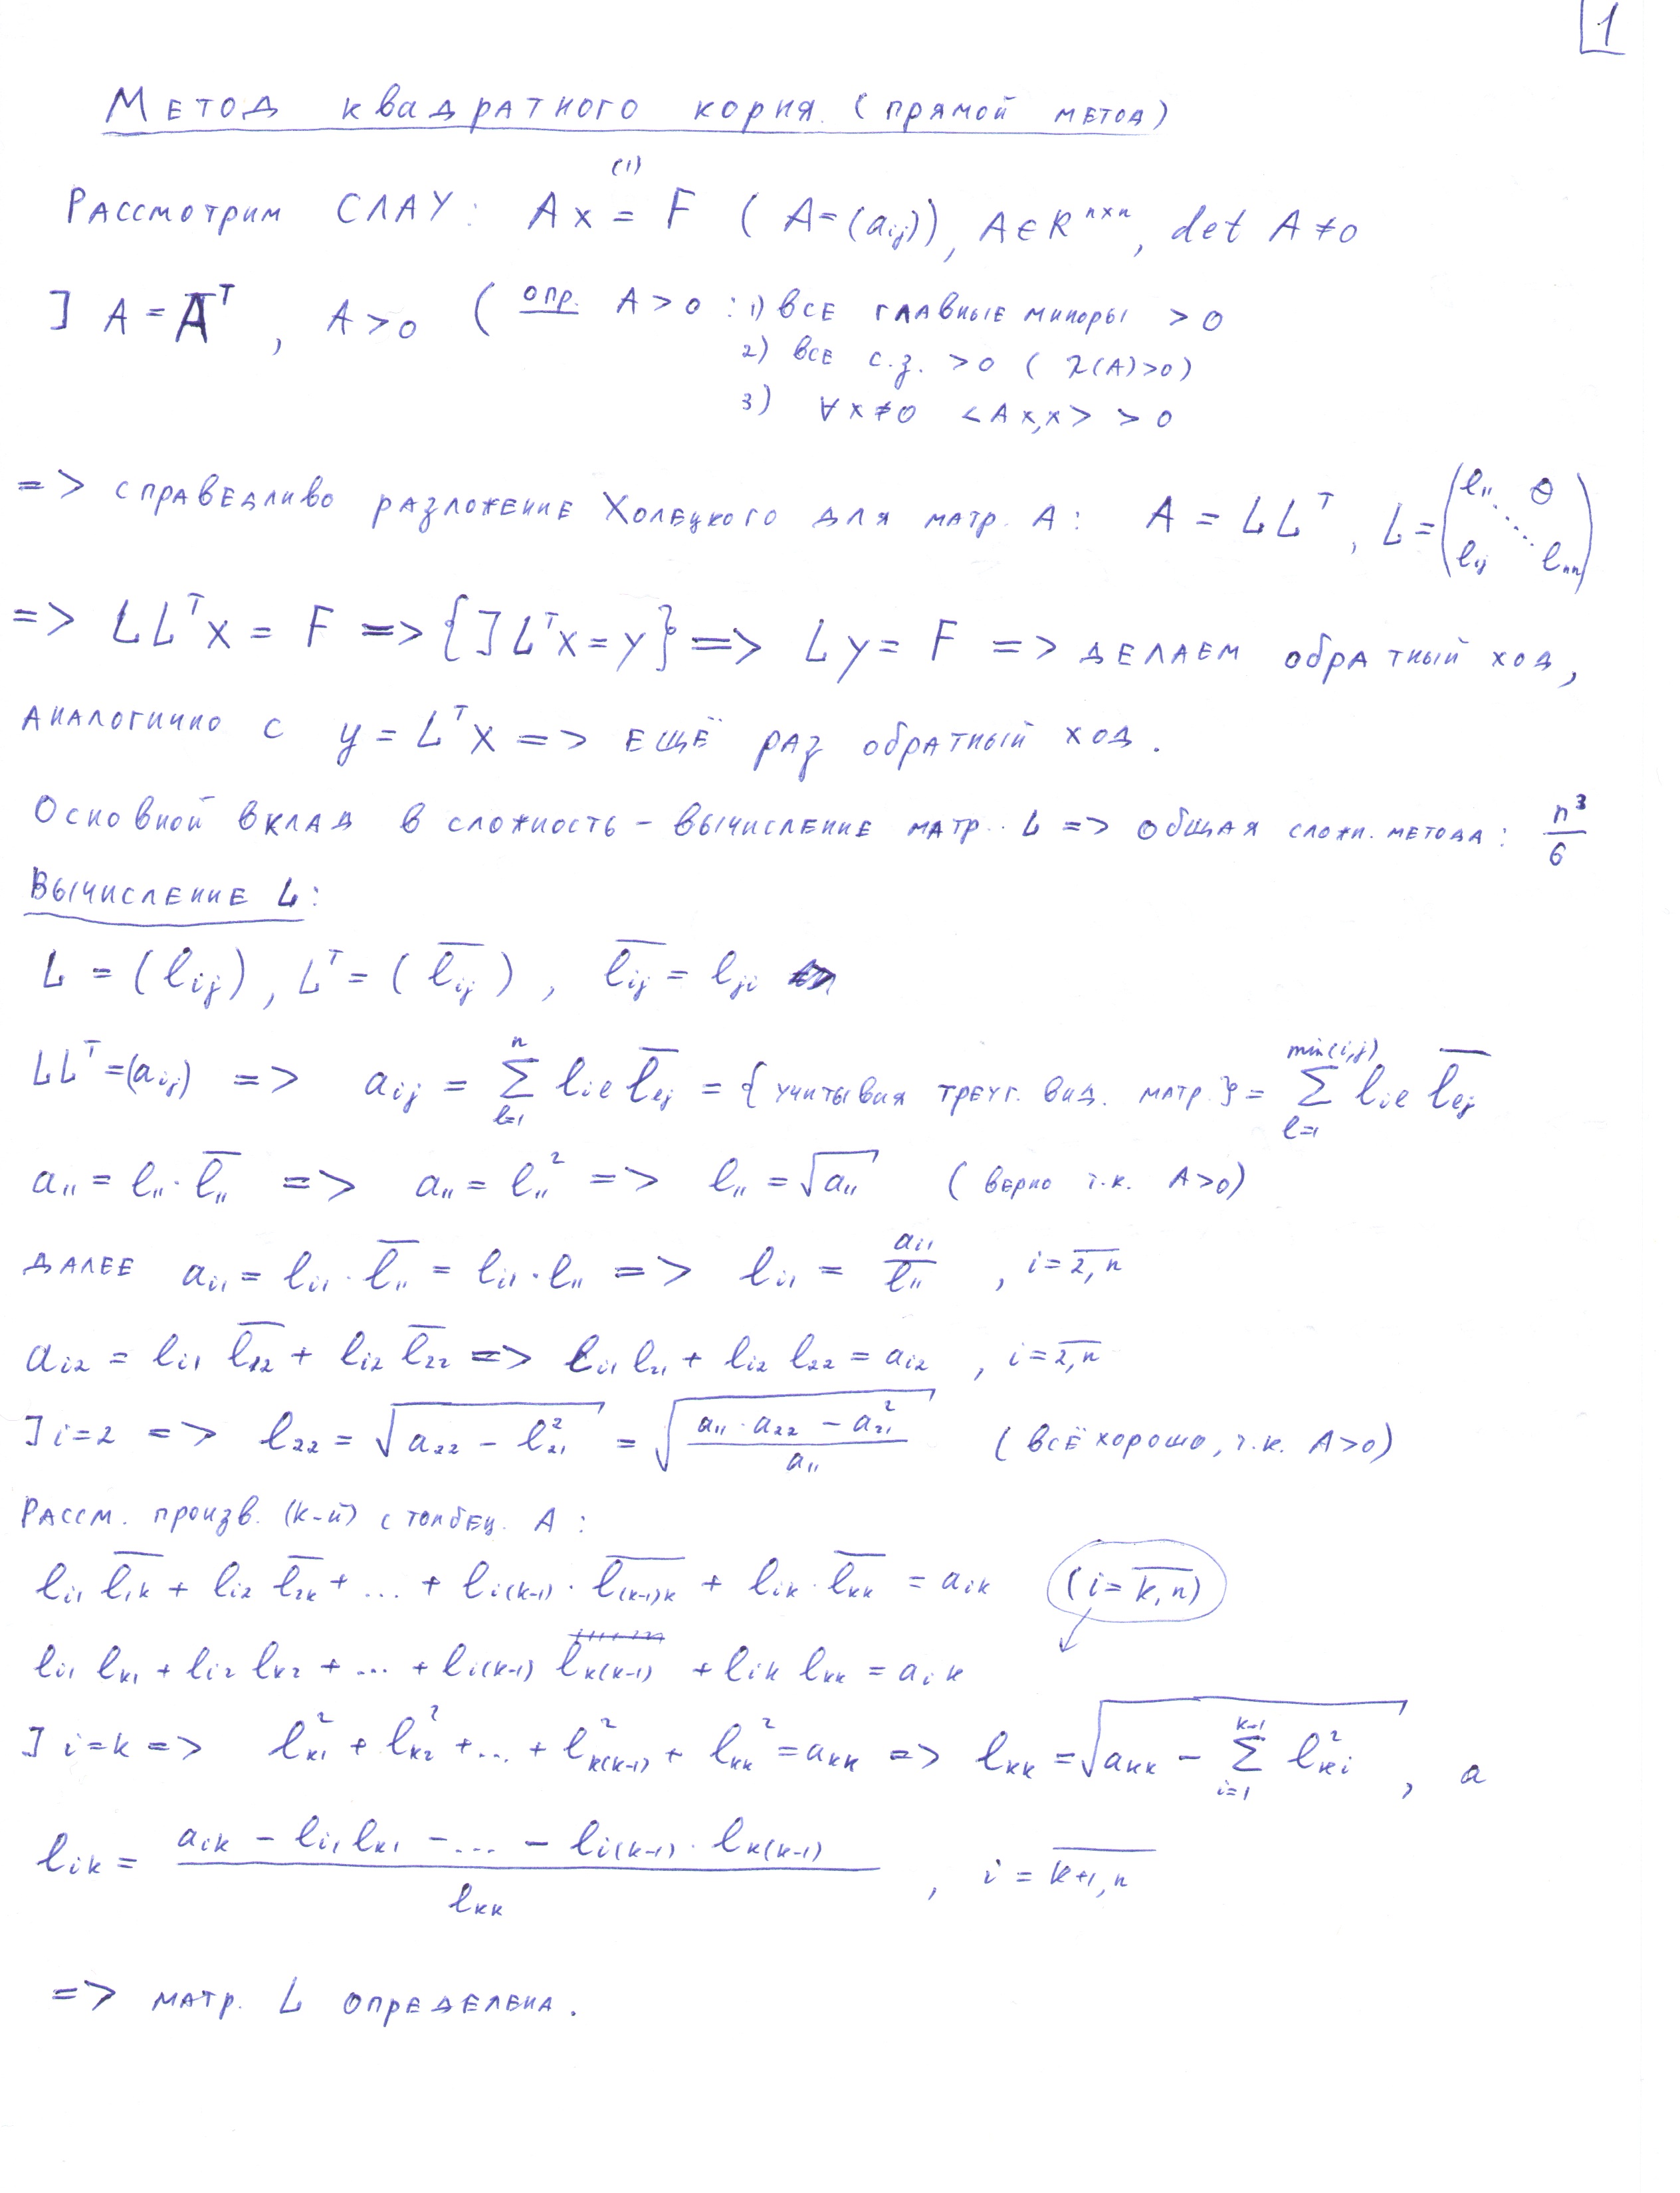 1
Метод квадратного корня. (прямой метод)
Рассмотрим СЛАУ: Ax = F (1) ( A=(a_ij)), A∈R^{n×n}, det A≠0
] A = A^T, A>0 ( опр. A>0 : 1) все главные миноры >0
2) все с.з. >0 ( λ(A)>0)
3) ∀x≠0 <Ax,x> > 0
=> справедливо разложение Холецкого для матр. A: A = LL^T, L = (l_11 0 ⋱ l_ij l_nn)
=> LL^T x = F => {] L^T x = y} => Ly = F => делаем обратный ход,
аналогично с y = L^T x => ещё раз обратный ход.
Основной вклад в сложность – вычисление матр. L => общая сложн. метода: n^3/6
Вычисление L:
L = (l_ij), L^T = (\overline{l_ij}), \overline{l_ij} = l_ji
LL^T = (a_ij) => a_ij = Σ_{l=1}^{n} l_il \overline{l_lj} = {учитывая треуг. вид. матр.} = Σ_{l=1}^{min(i,j)} l_il \overline{l_lj}
a_11 = l_11 · \overline{l_11} => a_11 = l_11^2 => l_11 = √a_11 (верно т.к. A>0)
далее a_i1 = l_i1 · \overline{l_11} = l_i1 · l_11 => l_i1 = a_i1/l_11, i = \overline{2,n}
a_i2 = l_i1 \overline{l_12} + l_i2 \overline{l_22} => l_i1 l_21 + l_i2 l_22 = a_i2, i = \overline{2,n}
] i=2 => l_22 = √(a_22 – l_21^2) = √((a_11 · a_22 – a_21^2)/a_11) (всё хорошо, т.к. A>0)
Рассм. произв. (k-й) столбец. A:
l_i1 \overline{l_1k} + l_i2 \overline{l_2k} + ... + l_i(k-1) · \overline{l_(k-1)k} + l_ik · \overline{l_kk} = a_ik (i = \overline{k,n})
l_i1 l_k1 + l_i2 l_k2 + ... + l_i(k-1) l_k(k-1) + l_ik l_kk = a_ik
] i=k => l_k1^2 + l_k2^2 + ... + l_k(k-1)^2 + l_kk^2 = a_kk => l_kk = √(a_kk – Σ_{i=1}^{k-1} l_ki^2), а
l_ik = (a_ik – l_i1 l_k1 – ... – l_i(k-1) · l_k(k-1))/l_kk, i = \overline{k+1,n}
=> матр. L определена.